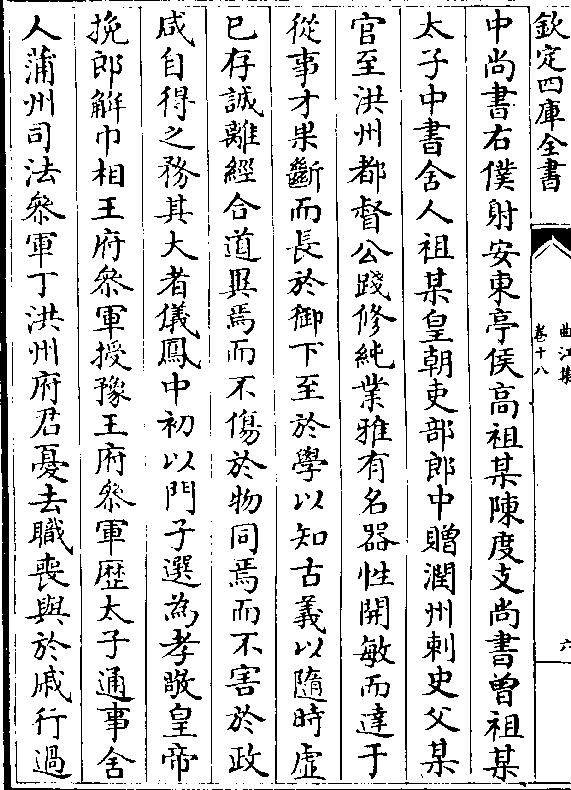 欽定四庫全書
曲江集
卷十八
六
中尚書右僕射安東亭侯髙祖某陳度支尚書曽祖某
太子中書舍人祖某皇朝吏部郎中贈潤州刺史父某
官至洪州都督公踐修純業雅有名器性開敏而達于
從事才果斷而長於御下至於學以知古義以隨時虚
已存誠離經合道異焉而不傷於物同焉而不害於政
咸自得之務其大者儀鳳中初以門子選為孝敬皇帝
挽郎解巾相王府參軍授豫王府參軍歴太子通事舍
人蒲州司法參軍丁洪州府君憂去職喪與於戚行過